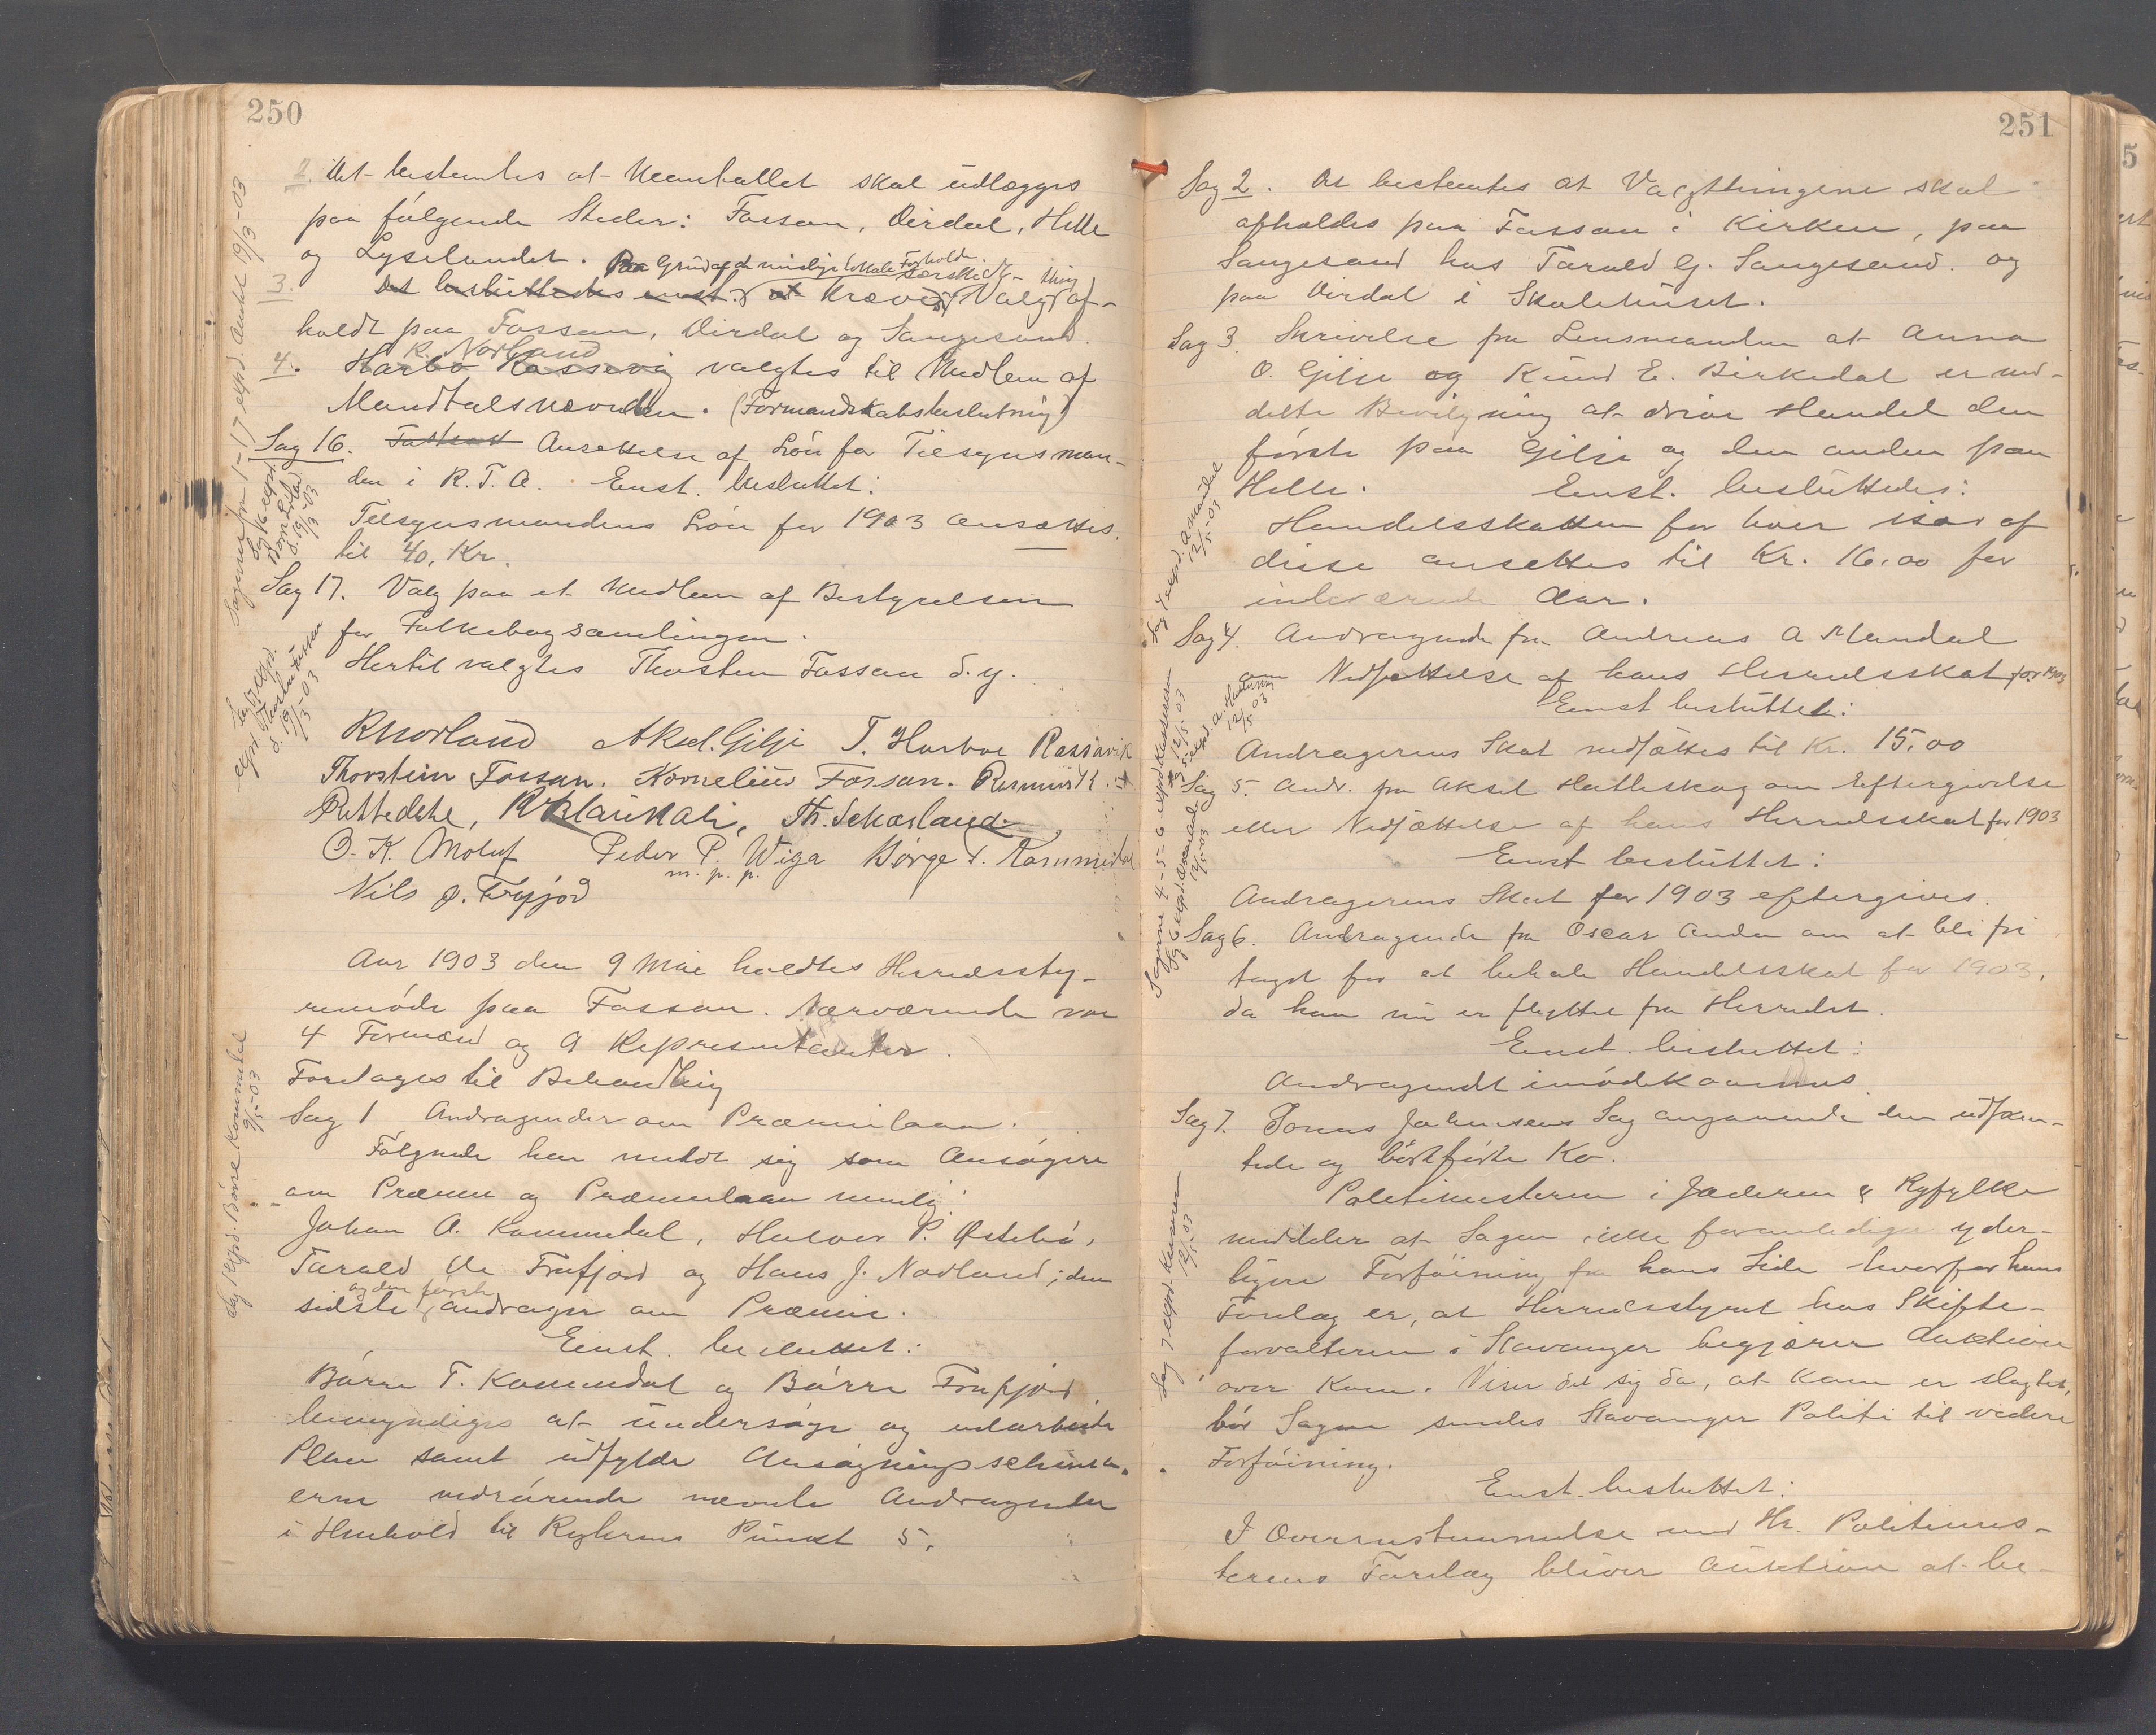 250
2. Det bestemtes at Manntallet skal udlægges
paa følgende Steder: Fossan, Dirdal, Helle
og Lyselandet. Paa Grund af de mislige lokale Forholde
3. Det besluttedes enst. at kræves særskilt Valgting af-
holdt paa Fossan, Dirdal og Sangesand.
R. Norland
4. Harbo Rossevig valgtes til Medlem af
Mandtalsnævnden. (Formandskabsbeslutning)
Sag 16. Fastsat Ansættelse af Løn for Tilsynsman-
den i R.T.A. Enst. besluttet:
Tilsynsmandens Løn for 1903 ansættes
til 40, Kr.
Sag 17. Valg paa et Medlem af Bestyrelsen
for Folkebogsamlingen.
Hertil valgtes Thosten Fossan d.y.
R Norland Aksel. Gilje T. Harboe Rossavik
Thorstein Fossan. Kornelius Fossan. Rasmus K.
Rettedal, Th. Sekasland
O. K. Moluf Peder P. Wiga Børge T. Kommedal
m. p. p.
Nils J. Frafjod
Aar 1903 den 9 Mai holdtes Herredssty-
remøde paa Fossan. Nærværende var
4 Formænd og 9 Repræsentanter.
Foretoges til Behandling
Sag 1 Andragender om Præmielaan.
Følgende har meldt sig som Ansøgere
om Præmie og Præmielaan nemlig:
Johan A. Kommedal, Halvor P. Østebø,
Tarald Frafjord og Hans J. Nodland; den
og den første
sidste andrager om Præmie.
Enst. besluttet:
Børre T. Kommedal og Børre Frafjord
bemyndiges at undersøge og udarbeide
Plan samt udfylde Ansøgningsschema-
erne vedrørende nævnte Andragender
i Henhold til Reglernes Punkt 5.
Sagerne fra 1-17 expd. Amtet 19/3-03
Sag 16 expd.
d. 19/3-03
Sag 17 expd.
expd. Thosten Fossan
d. 19/3-03
Sag 1 expd. Børre Kommedal
9/5-03
251
Sag 2. Det bestemtes at Valgthingene skal
afholdes paa Fossan i Kirken, paa
Sangesand hos Tarald G. Sangesand. og
paa Dirdal i Skolehuset.
Sag 3. Skrivelse fra Lensmanden at Anna
O. Gilje og Knud E. Birkedal er med-
delte Bevilgning at drive Handel den
første paa Gilje og den anden paa
Helle. Enst. besluttedes:
Handelsskatten for hver især af
disse ansættes til Kr. 16.00 for
indeværende Aar.
Sag 4. Andragende fra Andreas A Mandal
om Nedsættelse af hans Herredsskat for 1903
Enst besluttet:
Andragerens Skat nedsættes til Kr. 15.00
Sag 5. Andr. fra Aksel Hatleskog om Eftergivelse
eller Nedsættelse af hans Herredsskat for 1903
Enst besluttet:
Andragerens Skat for 1903 eftergives.
Sag 6. Andragende fra Oscar Anda om at bli fri
taget for at betale Handelsskat for 1903,
da han nu er flyttet fra Herredet.
Enst. besluttet:
Andragendet imødekommes
Sag 7. Jonas Johnsens Sag angaaende den udpan-
tede og bortførte Ko.
Politimesteren i Jæderen & Ryfylke
meddeler at Sagen ikke foranlediger yder-
ligere Forføining fra hans Side hvorfor hans
Forslag er, at Herredsstyret hos Skifte-
forvalteren i Stavanger begjærer Auktion
over Koen. Viser det sig da, at Koen er slagtet,
bør Sagen sendes Stavanger Politi til videre
Forføining.
Enst. besluttet:
I Overensstemmelse med Hr. Politimes-
terens Forslag bliver Auktion at be-
Sag 4 expd. A Mandal
12/5-03
Sagerne 4-5-6 expd. Kassereren
12/5-03
Sag 6 expd.
12/5-03
Sag 7 expd. Kasserern
12/5-03